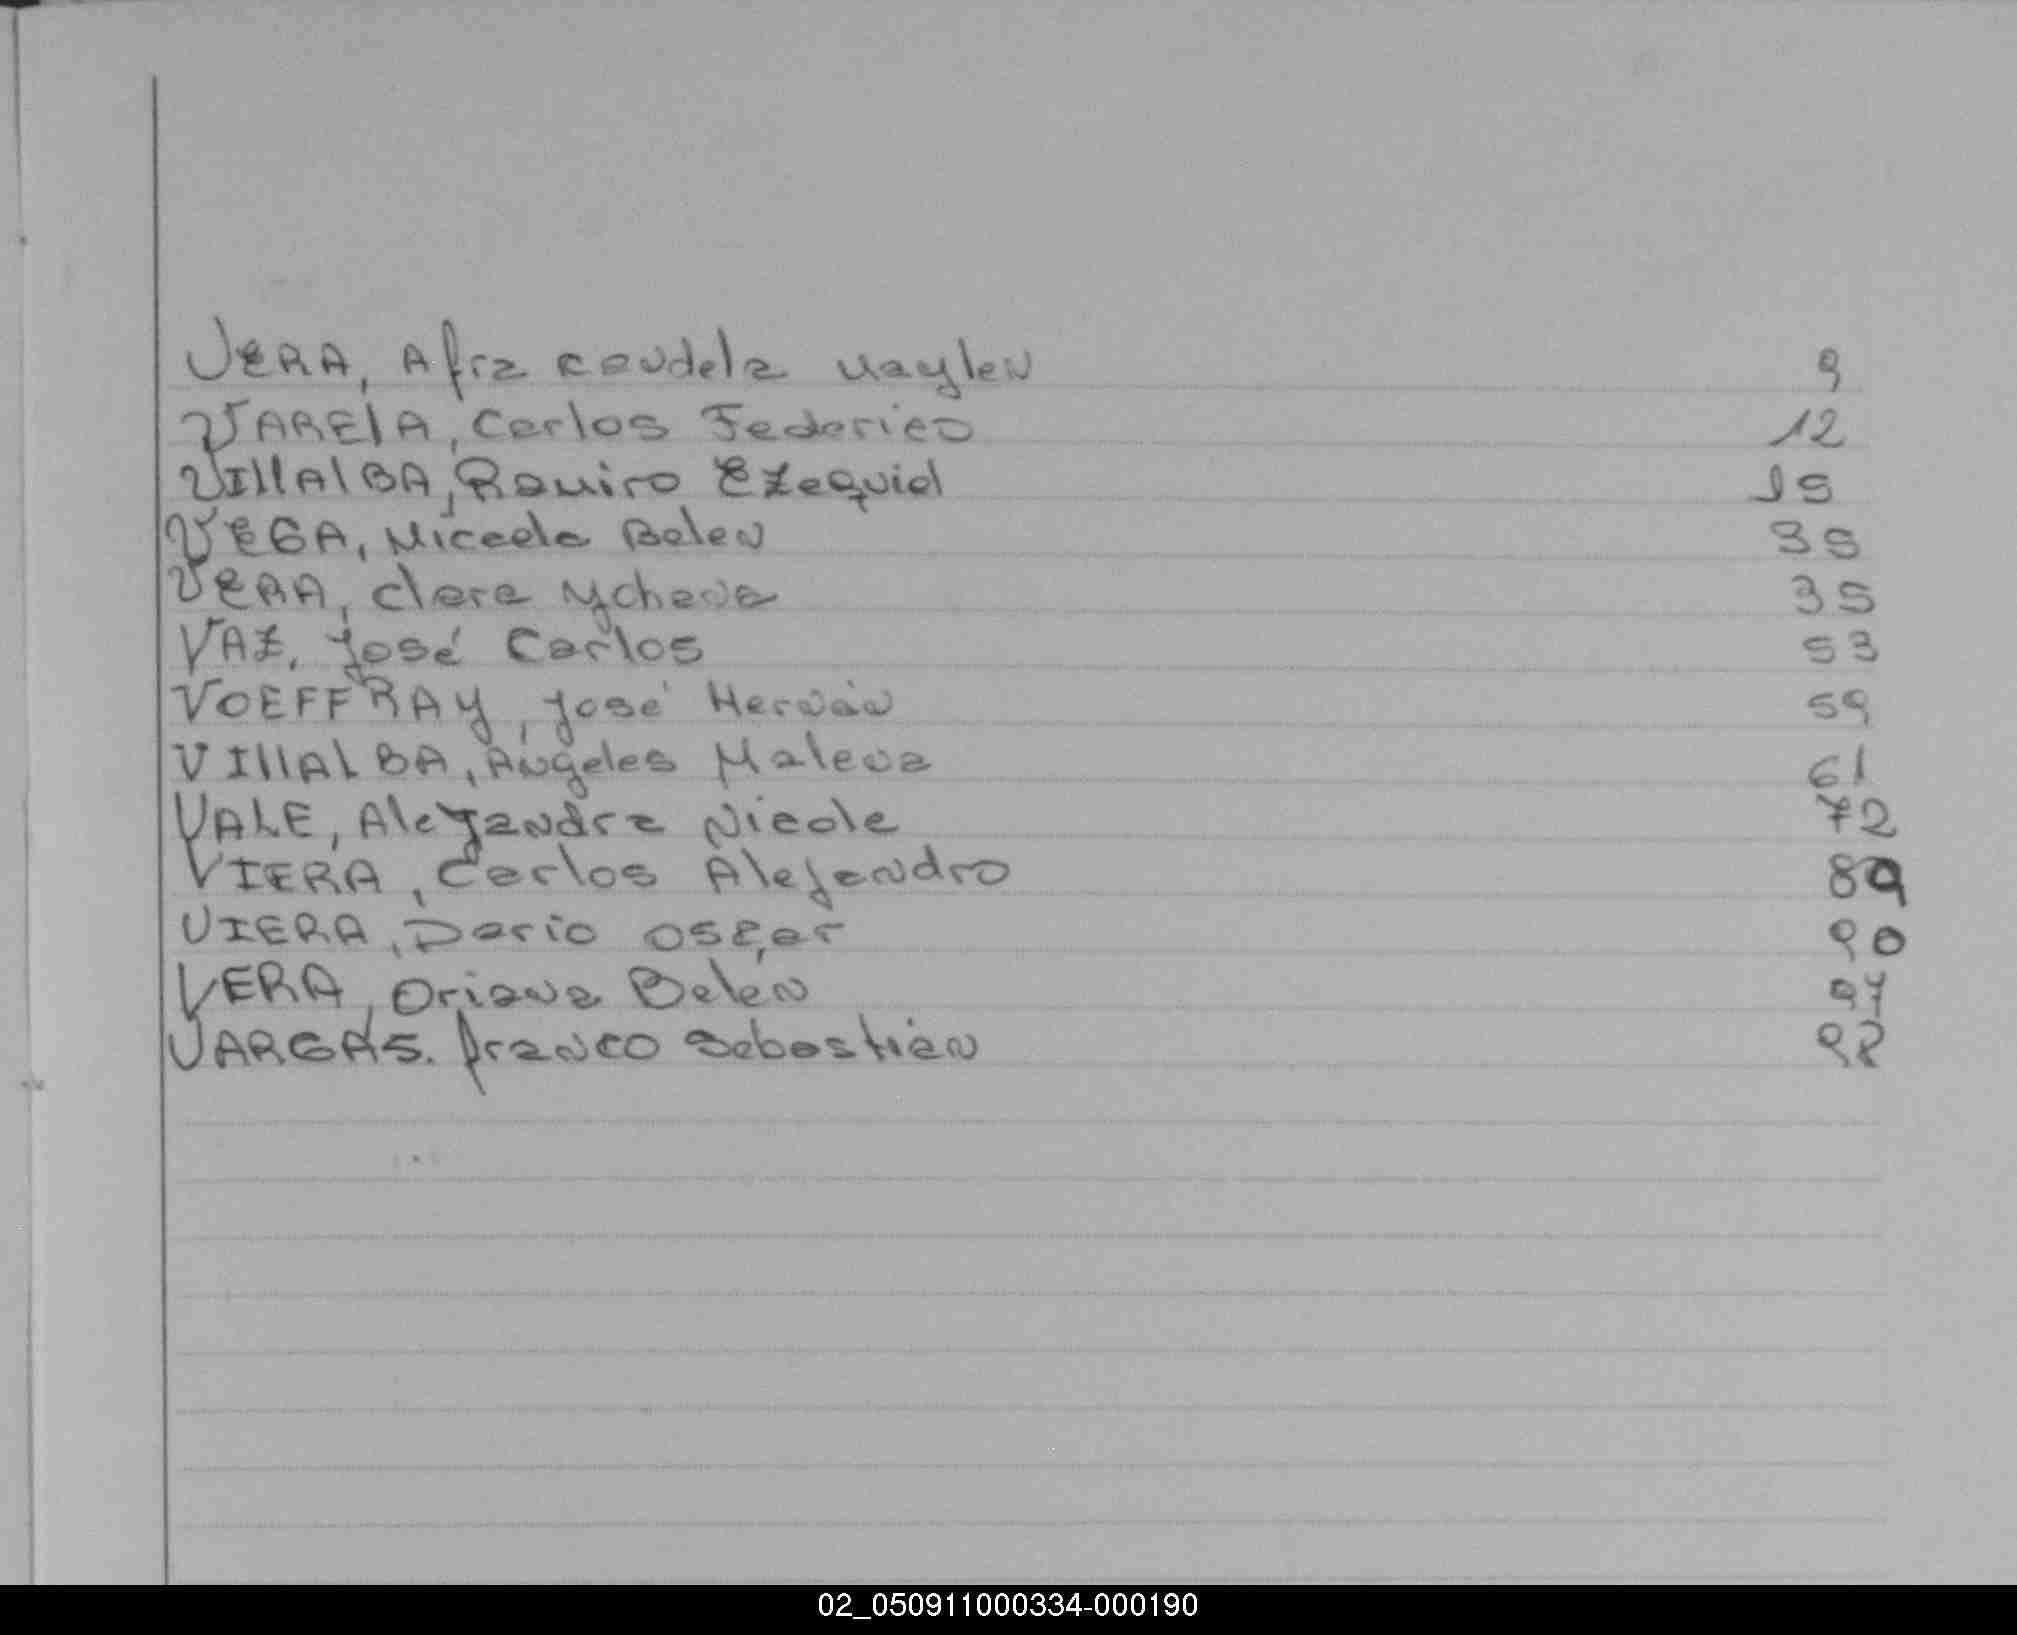 VERA, Afra Candela Maylen 9
VARELA, Carlos Federico 12
VILLALBA, Ramiro Ezequiel 15
VEGA, Micaela Belen 35
VERA, Clara Ychena 35
VAZ, José Carlos 53
VOEFFRAY, José Hernán 59
VILLALBA, Angeles Malena 61
VALE, Alejandra Nicole 72
VIERA, Carlos Alejandro 89
VIERA, Dario Oscar 90
VERA, Oriana Belén 97
VARGAS. Franco Sebastián 98
02_050911000334-000190